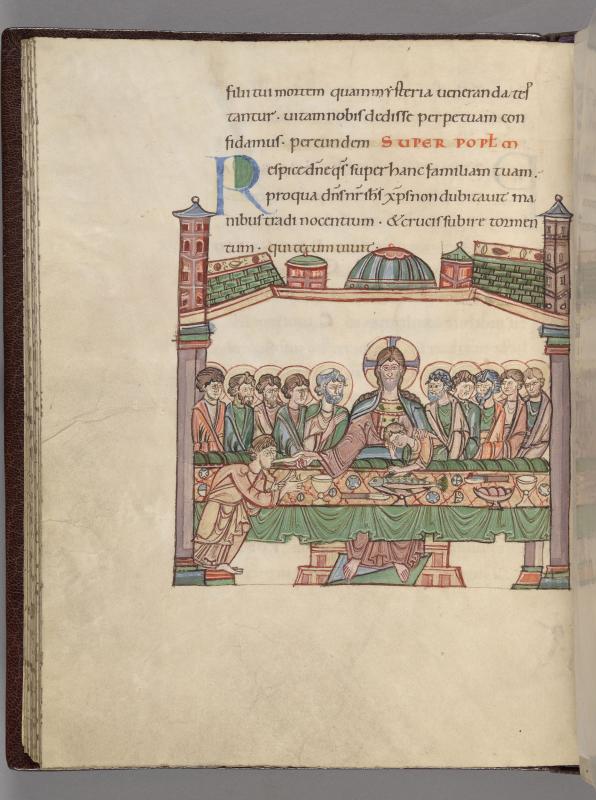 filii tui mortem quam mẏsteria ueneranda tes
tantur · uitam nobis dedisse perpetuam con
fidamus · per eundem SUPER POPŁM
Respice dn̄e q̄s super hanc familiam tuam ·
pro qua dn̄s nr̄ ih̄s xp̄s non dubitauit ma
nibus tradi nocentium · & crucis subire tormen
tum · qui tecum uiuit ·